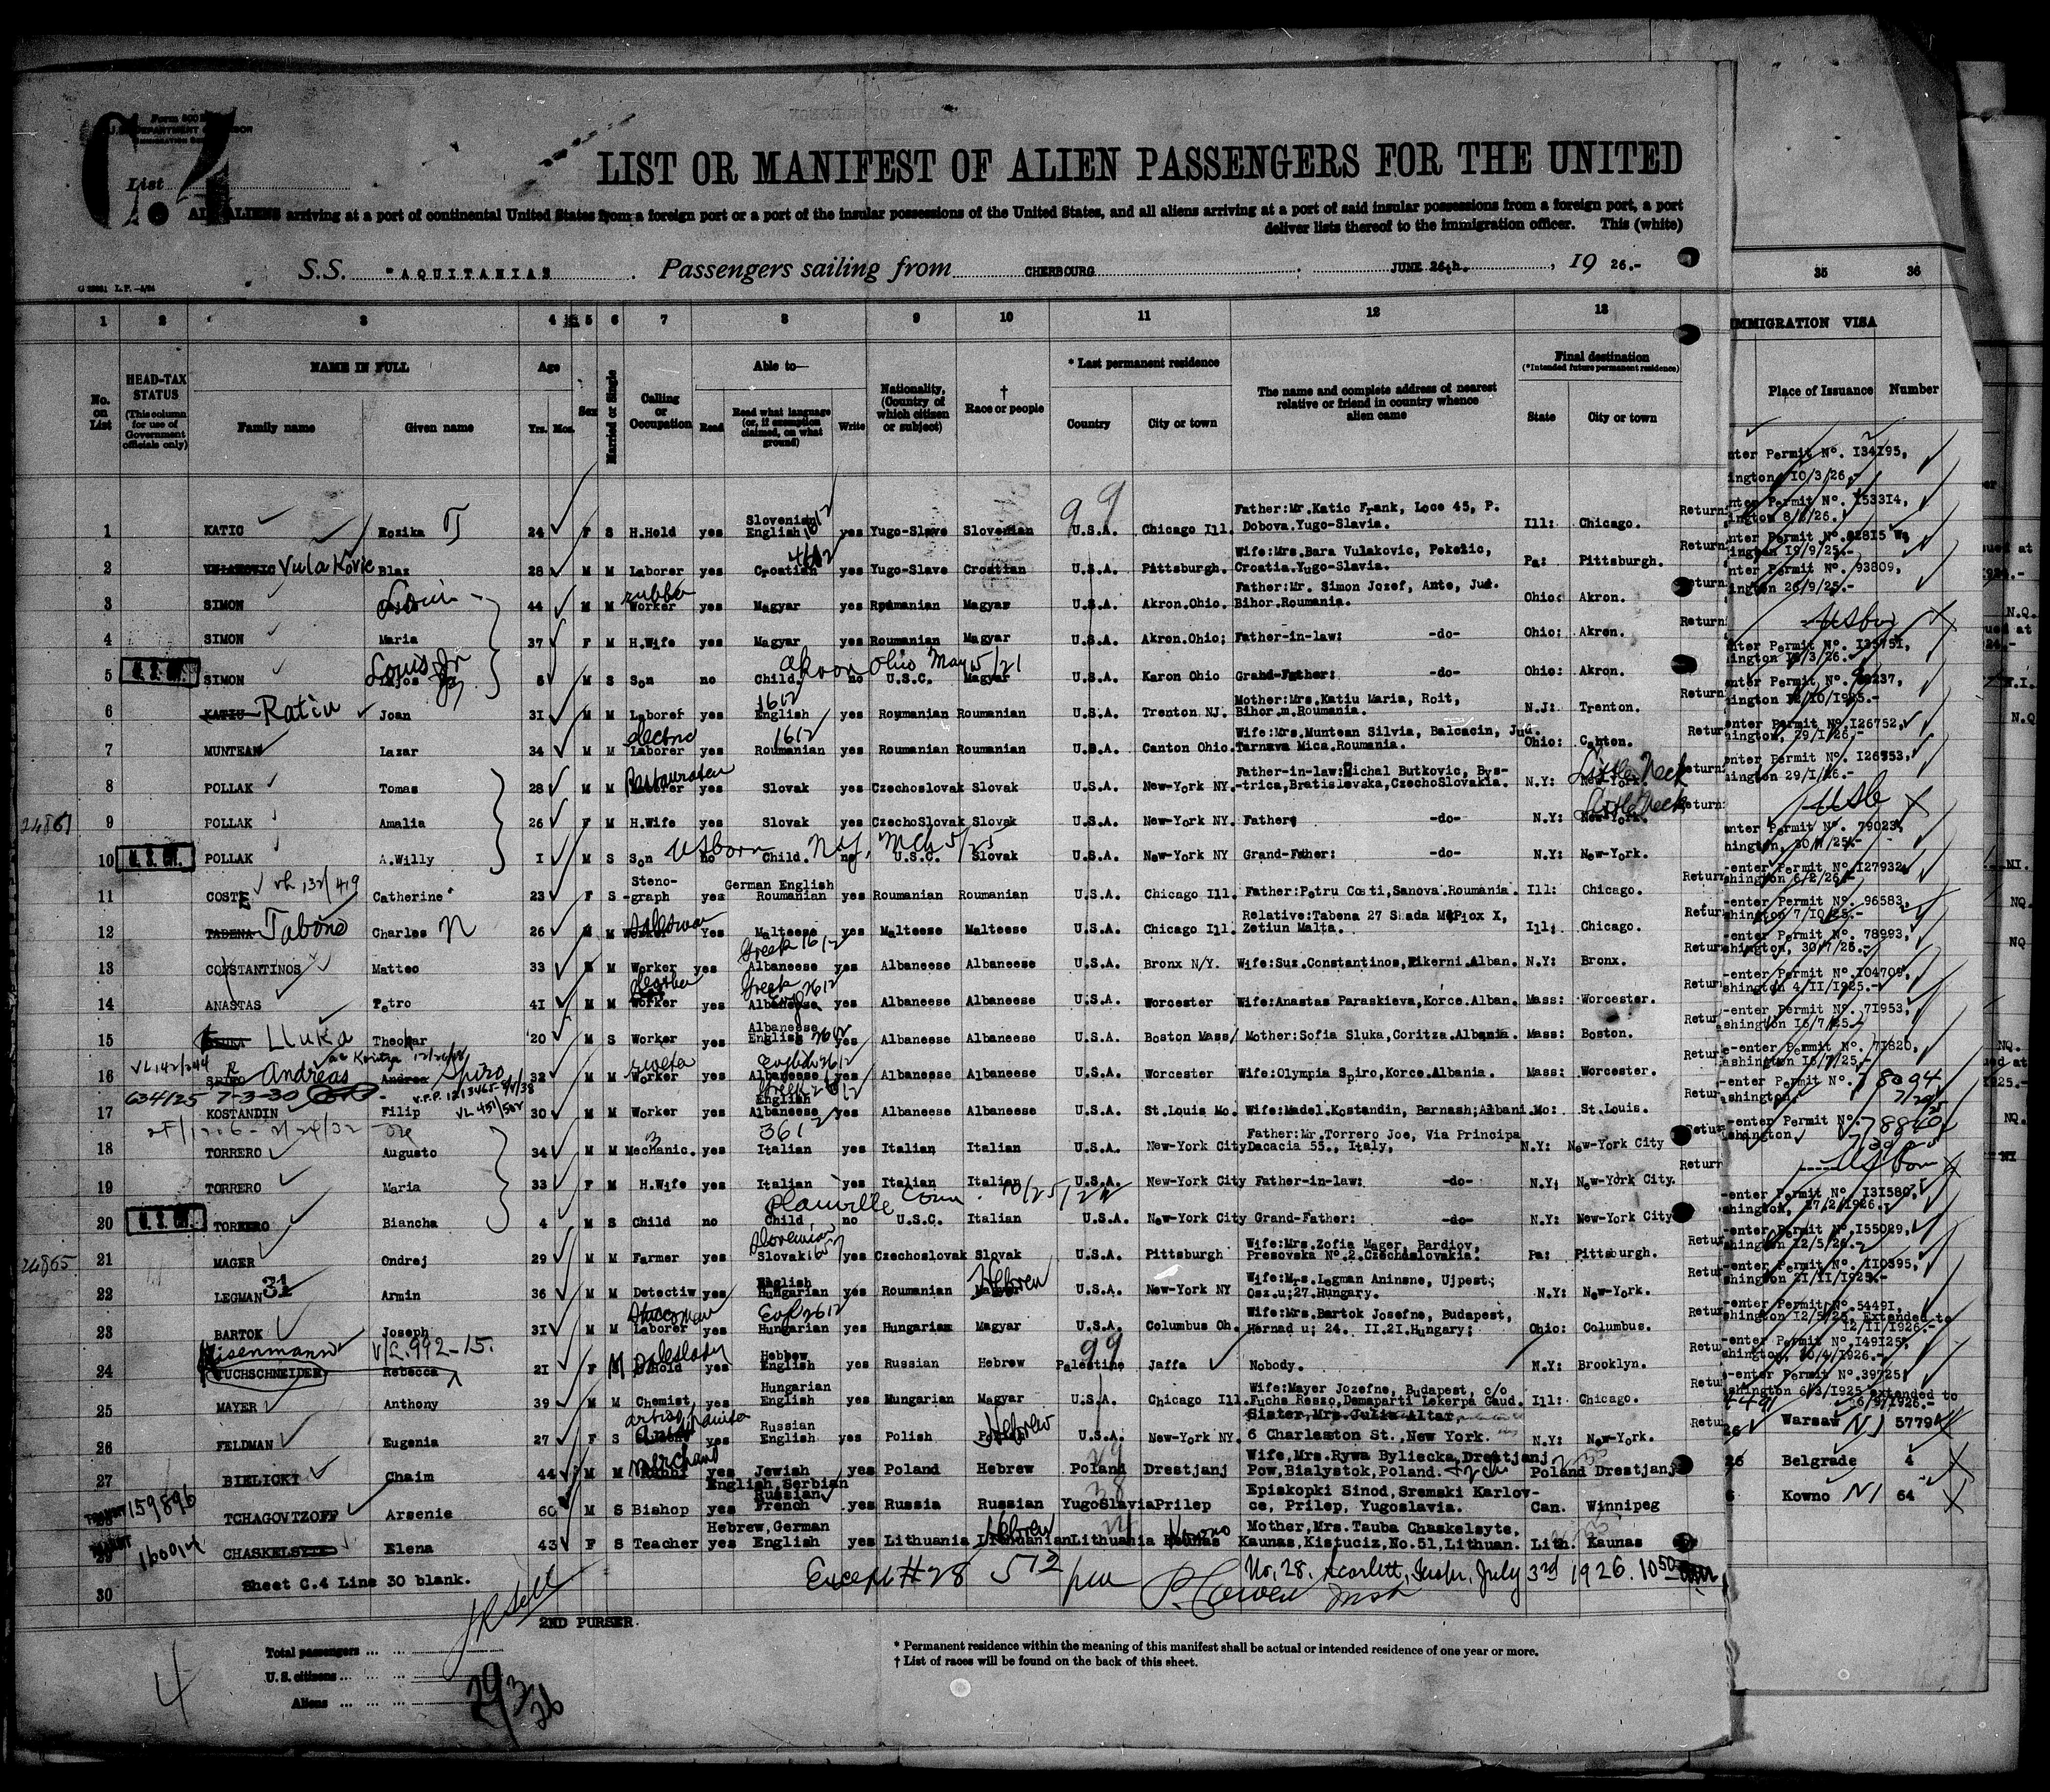 Form 500
U.S. DEPARTMENT OF LABOR
IMMIGRATION
C.4
List
LIST OR MANIFEST OF ALIEN PASSENGERS FOR THE UNITED
ALL ALIENS arriving at a port of continental United States from a foreign port or a port of the insular possessions of the United States, and all aliens arriving at a port of said insular possessions from a foreign port, a port
deliver lists thereof to the immigration officer. This (white)
S.S. "AQUITANIA" Passengers sailing from CHERBOURG, JUNE 26th., 19 26.-
1 2 3 4 5 6 7 8 9 10 11 12 13 35 36
No. on List
HEAD-TAX STATUS (This column for use of Government officials only)
NAME IN FULL
Family name Given name
Age Yrs. Mos.
Sex
Married or Single
Calling or Occupation
Able to—
Read Read what language (or, if exemption claimed, on what ground) Write
Nationality, (Country of which citizen or subject)
† Race or people
* Last permanent residence
Country City or town
The name and complete address of nearest relative or friend in country whence alien came
Final destination (*Intended future permanent residence)
State City or town
IMMIGRATION VISA
Place of Issuance Number
1 KATIC Rozika 24 F S H.Hold yes Slovenian English yes Yugo-Slave Slovenian U.S.A. Chicago Ill. Father:Mr.Katic Frank, Loce 45, P. Dobova.Yugo-Slavia. Ill: Chicago.
2 Vulakovic Blaz 28 M M Laborer yes Croatian yes Yugo-Slave Croatian U.S.A. Pittsburgh. Wife:Mrs.Bara Vulakovic, Pekelic, Croatia.Yugo-Slavia. Pa: Pittsburgh.
3 SIMON Louis 44 M M rubber Worker yes Magyar yes Roumanian Magyar U.S.A. Akron.Ohio. Father:Mr. Simon Jozef, Ante, Jud. Bihor.Roumania. Ohio: Akron.
4 SIMON Maria 37 F M H.Wife yes Magyar yes Roumanian Magyar U.S.A. Akron.Ohio; Father-in-law: -do- Ohio: Akron.
Akron Ohio May 5/21
5 SIMON Louis Jr 5 M S Son no Child. no U.S.C. Magyar U.S.A. Karon Ohio Grand-Father: -do- Ohio: Akron.
6 KATIU Ratiu Joan 31 M M Laborer yes English yes Roumanian Roumanian U.S.A. Trenton NJ. Mother:Mrs.Katiu Maria, Roit, Bihor.m.Roumania. N.J: Trenton.
7 MUNTEAN Lazar 34 M M electric Laborer yes Roumanian yes Roumanian Roumanian U.S.A. Canton Ohio. Wife:Mrs.Muntean Silvia, Balcacin, Jud. Tarnava Mica.Roumania. Ohio: Canton.
8 POLLAK Tomas 28 M M yes Slovak yes Czechoslovak Slovak U.S.A. New-York NY. Father-in-law:Michal Butkovic, Bys-trica,Bratislavska,CzechoSlovakia. N.Y: Little Neck
9 POLLAK Amalia 26 F M H.Wife yes Slovak yes CzechoSlovak Slovak U.S.A. New-York NY. Father: -do- N.Y: Little Neck
10 POLLAK A.Willy I M S Son no Child. no U.S.C. Slovak U.S.A. New-York NY Grand-Father: -do- N.Y: New-York.
11 COSTE Catherine 23 F S Steno-graph yes German English Roumanian yes Roumanian Roumanian U.S.A. Chicago Ill. Father:Petru Costi,Sanova.Roumania. Ill: Chicago.
12 TABENA Tabone Charles 26 M M Worker Yes Malteese yes Malteese Malteese U.S.A. Chicago Ill. Relative:Tabena 27 Stada Mc Piox X, Zetiun Malta. Ill: Chicago.
13 CONSTANTINOS Matteo 33 M M Worker yes Greek Albaneese yes Albaneese Albaneese U.S.A. Bronx N/Y. Wife:Suz.Constantinos,Zikerni.Alban. N.Y: Bronx.
14 ANASTAS Petro 41 M M Worker yes Greek Albaneese yes Albaneese Albaneese U.S.A. Worcester Wife:Anastas Paraskieva,Korce.Alban. Mass: Worcester.
15 Lluka Theohar 20 M S Worker yes Albaneese English yes Albaneese Albaneese U.S.A. Boston Mass/ Mother:Sofia Sluka,Coritza.Albania. Mass: Boston.
16 SPIRO Andreas Andrea Spiro 32 M M Worker yes English Albaneese yes Albaneese Albaneese U.S.A. Worcester Wife:Olympia Spiro,Korce.Albania. Mass: Worcester.
634/25 7-3-30
17 KOSTANDIN Filip 30 M M Worker yes English Albaneese yes Albaneese Albaneese U.S.A. St.Louis Mo. Wife:Madel.Kostandin, Barnash;Albani. Mo: St.Louis.
18 TORRERO Augusto 34 M M Mechanic. yes Italian yes Italian Italian U.S.A. New-York City Father:Mr.Torrero Joe, Via Principa Dacacia 55., Italy, N.Y: New-York City
19 TORRERO Maria 33 F M H.Wife yes Italian yes Italian Italian U.S.A. New-York City Father-in-law: -do- N.Y; New-York City.
Plainville Conn. 10/25/22
20 TORRERO Biancha 4 M S Child no Child, no U.S.C. Italian U.S.A. New-York City Grand-Father: -do- N.Y: New-York City
21 MAGER Ondrej 29 M M Farmer yes Slovenian Slovak yes Czechoslovak Slovak U.S.A. Pittsburgh Wife:Mrs.Zofia Mager, Bardiov, Presovska No.2.Czechoslovakia. Pa: Pittsburgh.
22 LEGMAN 31 Armin 36 M M Detectiv yes English Hungarian yes Roumanian Hebrew U.S.A. New-York NY Wife:Mrs.Legman Aninsne, Ujpest; Osz.u;27.Hungary. N.Y: New-York.
23 BARTOK Joseph 31 M M Laborer yes Hungarian yes Hungarian Magyar U.S.A. Columbus Oh. Wife:Mrs.Bartok Josefne, Budapest, Hernad u; 24. II.21.Hungary; Ohio: Columbus.
24 Eisenmann V/L.992-15. TUCHSCHNEIDER Rebecca 21 F M Saleslady yes Hebrew English yes Russian Hebrew Palestine Jaffa Nobody. N.Y: Brooklyn.
25 MAYER Anthony 39 M M Chemist yes Hungarian English yes Hungarian Magyar U.S.A. Chicago Ill. Wife:Mayer Jozefne, Budapest, c/o Fuchs Reszo,Domparati Lekerpa Gaud. Ill: Chicago.
26 FELDMAN Eugenia 27 F S yes Russian English yes Polish Hebrew U.S.A. New-York NY. Sister Mrs.Julia Altar 6 Charleston St.,New York. N.Y: New-York.
27 BIELICKI Chaim 44 M M Merchand Rabbi yes Jewish yes Poland Hebrew Poland Drestjanj Wife,Mrs.Rywa Byliecka,Drestjanj Pow,Bialystok,Poland. Poland Drestjanj
28 159896 TCHAGOVTZOFF Arsenie 60 M S Bishop yes English,Serbian Russian French yes Russia Russian YugoSlavia Prilep Episkopki Sinod, Sremski Karlov-ce, Prilep, Yugoslavia. Can. Winnipeg
29 160014 CHASKELSYTE Elena 43 F S Teacher yes Hebrew,German English yes Lithuania Hebrew Lithuanian Lithuania Kaunas Mother,Mrs.Tauba Chaskelsyte, Kaunas,Kistuciz,No.51,Lithuan. Lith. Kaunas
30 Sheet C.4 Line 30 blank.
Except #28
No. 28. Scarlett, Inspr. July 3rd 1926. 10 50
2ND PURSER.
Total passengers
U.S. citizens
Aliens
29 3/26
4
* Permanent residence within the meaning of this manifest shall be actual or intended residence of one year or more.
† List of races will be found on the back of this sheet.
24861
24865
enter Permit No. 134195,
ington 10/3/26.-
enter Permit No. 153314,
ington 8/6/26.-
ington 19/9/25.-
enter Permit No. 93809,
ington 26/9/25.-
enter Permit No. 135751,
enter Permit No. 126752,
ington, 29/1/26.-
enter Permit No. 126953,
ington 29/1/26.-
enter Permit No. 79023,
enter Permit No. 127932,
shington 6/2/26.-
-enter Permit No. 96583,
shington 7/10/25.-
-enter Permit No. 78993,
shington, 30/7/25.-
-enter Permit No. 104709,
shington 4/11/1925.-
-enter Permit No. 71953,
shington 16/7/25.-
e-enter Permit No. 71820,
ashington 16/7/25.-
-enter Permit No. 78094
shington,
-enter Permit No. 78840
shington
-enter Permit No. 131580,
shington, 17/2/1926.-
-enter Permit No. 155029,
shington 12/5/26.-
-enter Permit No. 110395,
shington 21/11/1925.-
-enter Permit No. 54491,
shington 12/5/25, Extended to
12/11/1926.-
-enter Permit No. 149125,
shington, 30/4/1926.-
-enter Permit No. 39725,
shington 6/3/1925 extended to
6/9/1926.-
Warsaw NI 5779
Belgrade 4
Kowno NI 64